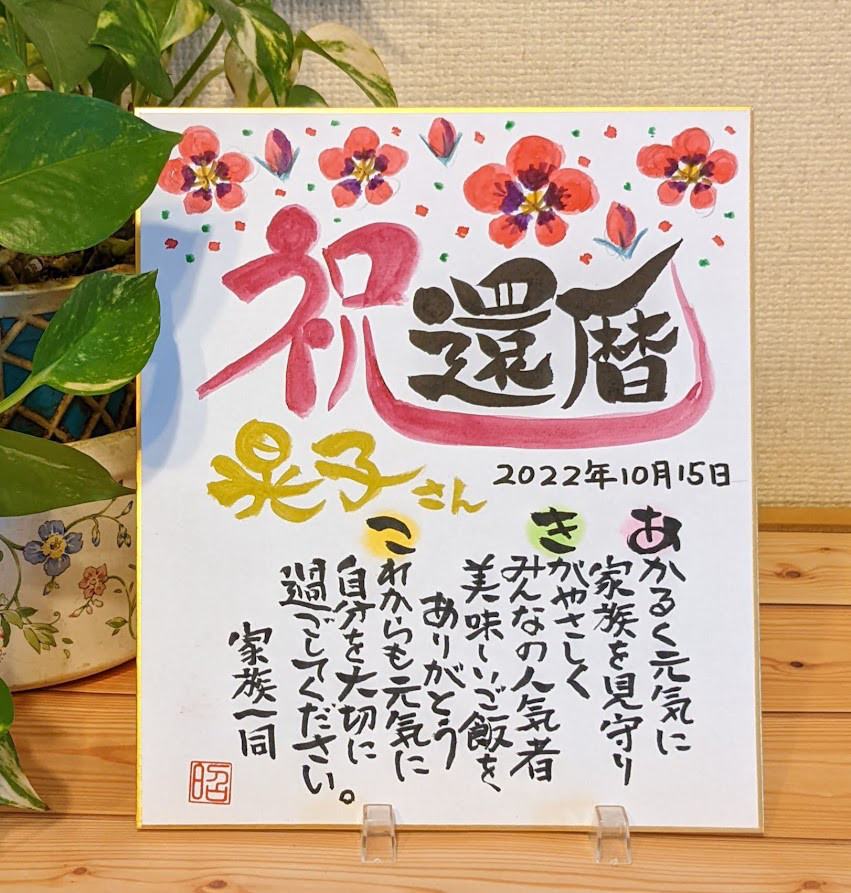 祝還暦
晃子さん
2022年10月15日
あかるく元気に
家族を見守り
きがやさしく
みんなの人気者
美味しいご飯を、
ありがとう
これからも元気に
自分を大切に
過ごしてください。
家族一同
昭